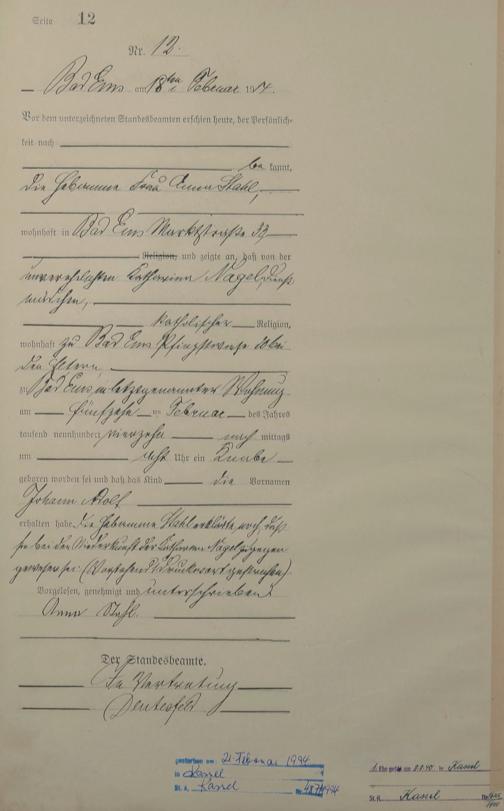 Seite 12
Nr. 12.
Bad Ems am 18ten Februar 1914.
Vor dem unterzeichneten Standesbeamten erschien heute, der Persönlich-
keit nach
be kannt,
die Hebamme Frau Anna Stahl,
wohnhaft in Bad Ems Marktstraße 39
Religion, und zeigte an, daß von der
unverehelichten Katharina Nagel, Dienst-
mädchen,
katholischer Religion,
wohnhaft zu Bad Ems bei
den Eltern,
zu Bad Ems in letztgenannter Wohnung
am fünfzehn ten Februar des Jahres
tausend neunhundert vierzehn nach mittags
um acht Uhr ein Knabe
geboren worden sei und daß das Kind die Vornamen
Johann Adolf
erhalten habe. Die Hebamme Stahl erklärte noch, daß
sie bei der Niederkunft der Katharina Nagel zugegen
gewesen sei. (Vorstehend 1 Druckwort gestrichen).
Vorgelesen, genehmigt und unterschrieben
Anna Stahl.
Der Standesbeamte.
In Vertretung
gestorben am 2. Februar 1994
in Kassel
St. A. Kassel Nr.
1. Ehe geschl. am in Kassel
St. A. Kassel Nr.